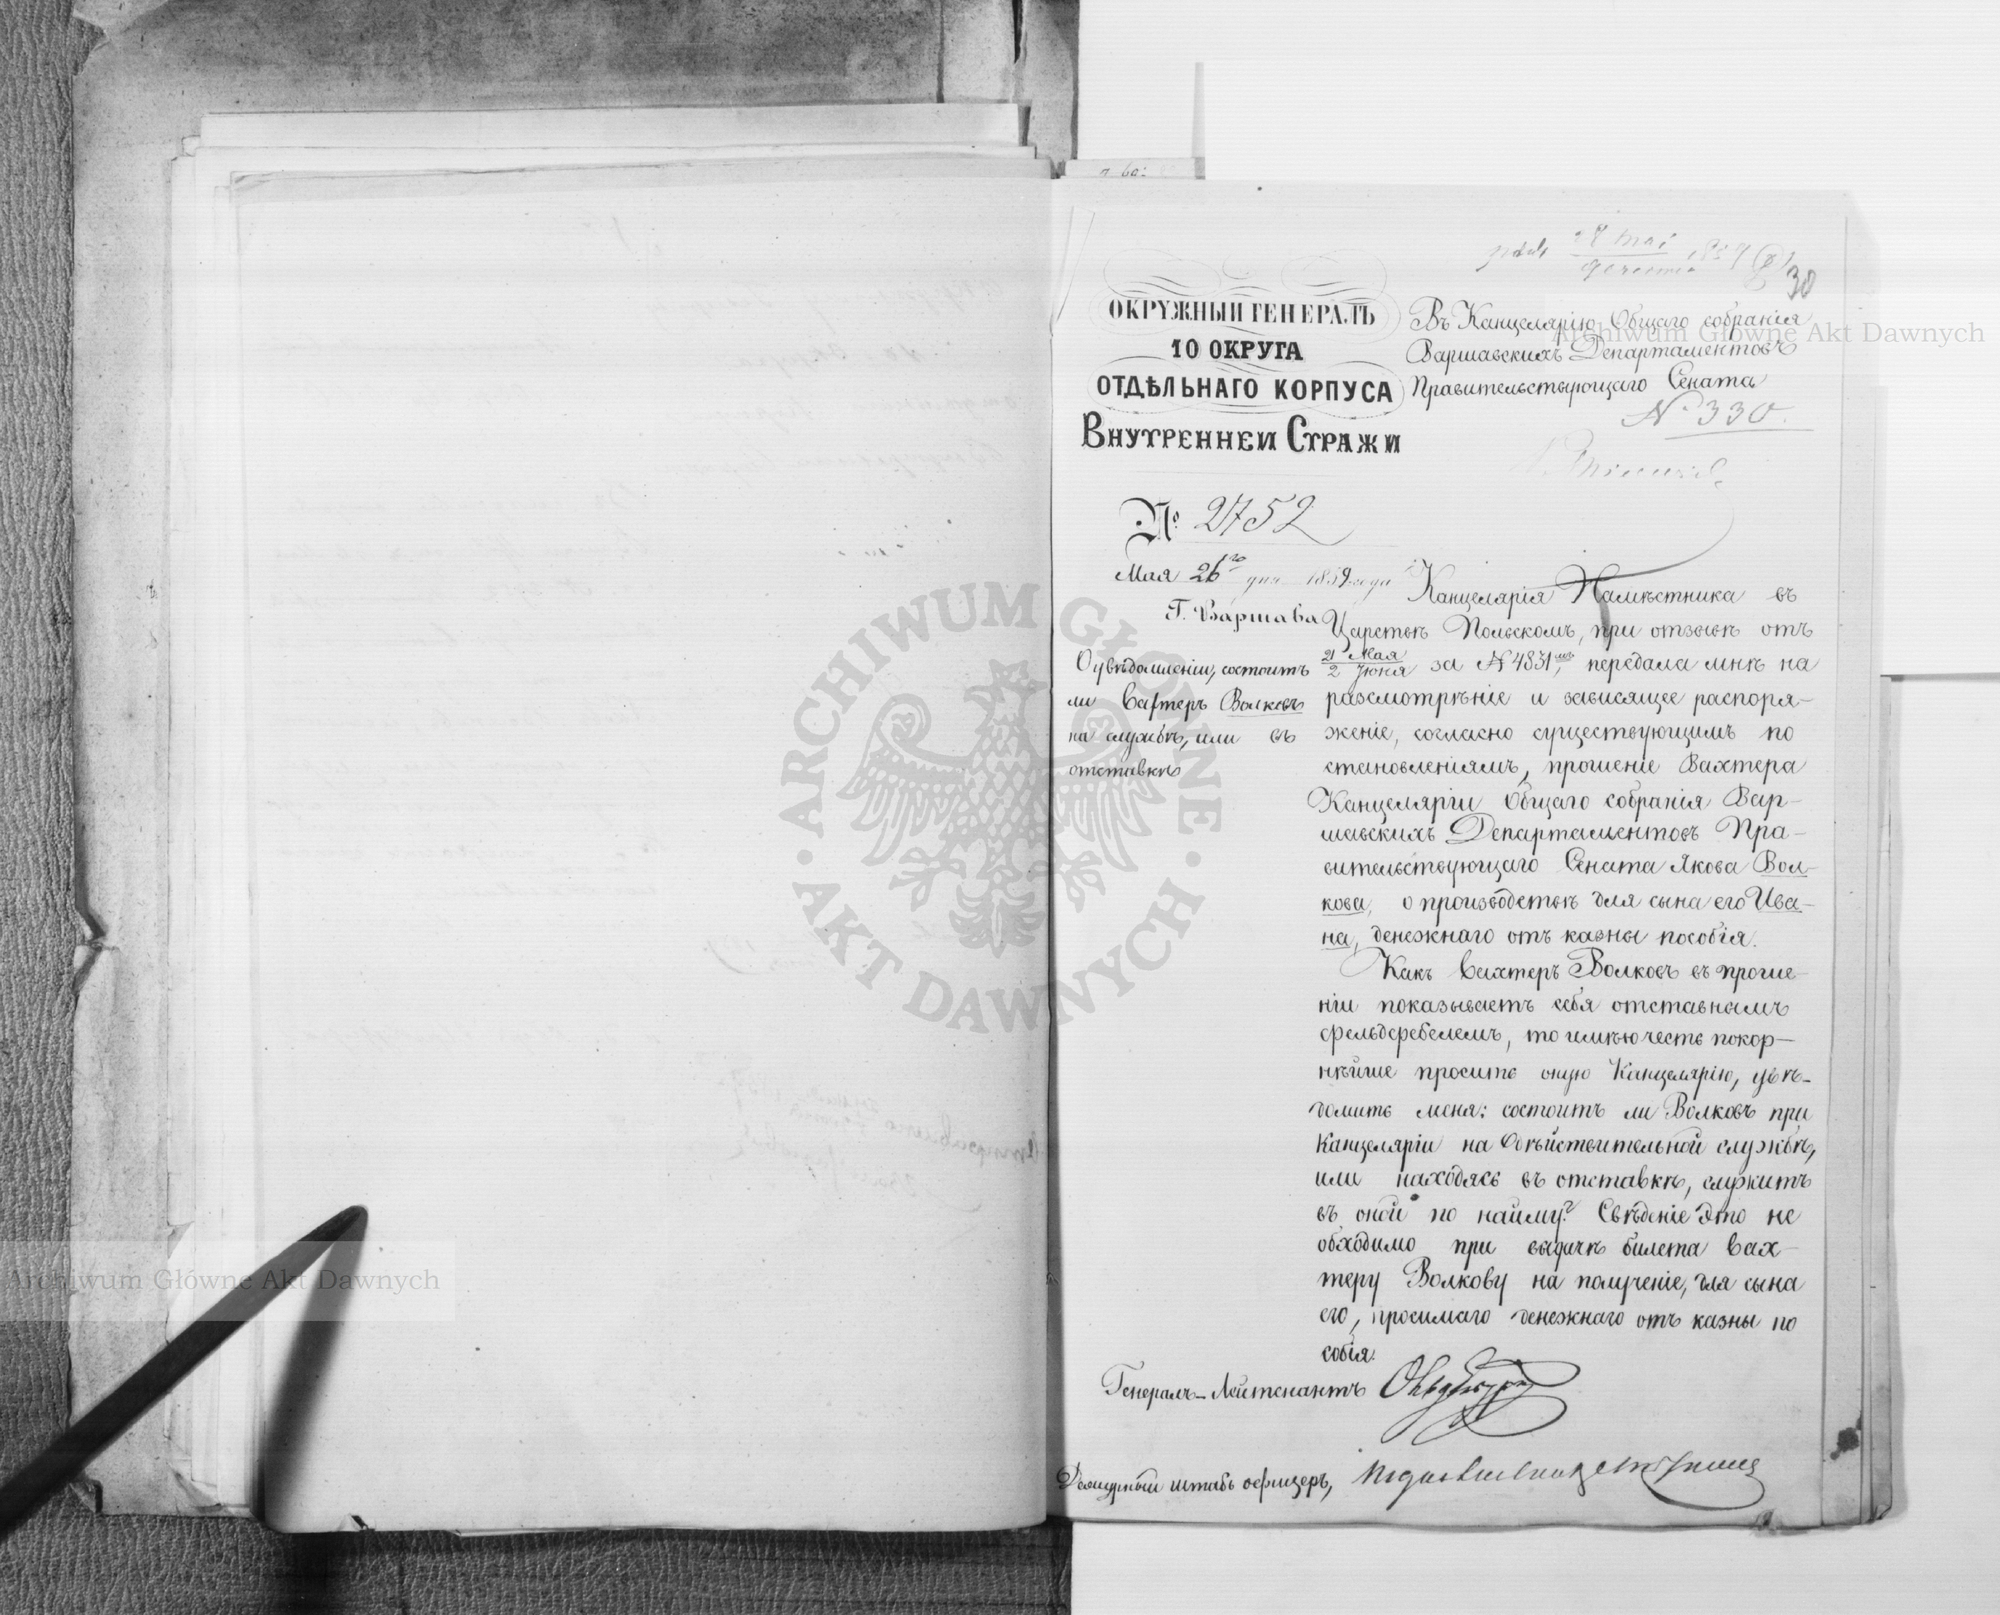 30
ОКРУЖНЫЙ ГЕНЕРАЛЪ
10 ОКРУГА
ОТДѢЛЬНАГО КОРПУСА
ВНУТРЕННЕЙ СТРАЖИ
№ 2752
Мая 26го дня 1859 года
Г. Варшава
О увѣдомленіи, состоитъ
ли Вахтеръ Волковъ
на службѣ, или въ
отставкѣ
Въ Канцелярію Общаго собранія
Варшавскихъ Департаментовъ
Правительствующаго Сената
№ 330.
Канцелярія Намѣстника въ
Царствѣ Польскомъ, при отзывѣ отъ
21 Мая / 2 Июня за № 4831мъ, передала мнѣ на
разсмотрѣніе и зависящее распоря-
женіе, согласно существующимъ по
становленіямъ, прошеніе Вахтера
Канцеляріи Общаго собранія Вар-
шавскихъ Департаментовъ Пра-
вительствующаго Сената Якова Вол-
кова, о производствѣ для сына его Ива-
на, денежнаго отъ казны пособія.
Какъ Вахтеръ Волковъ въ проше-
ніи показываетъ себя отставнымъ
фельдфебелемъ, то имѣю честь покор-
нѣйше просить оную Канцелярію, увѣ-
домить меня: состоитъ ли Волковъ при
Канцеляріи на дѣйствительной службѣ,
или находясь въ отставкѣ, служитъ
въ оной по найму? Свѣденіе это не
обходимо при выдачѣ билета Вах-
теру Волкову на полученіе, для сына
его, просимаго денежнаго отъ казны по
собія.
Генералъ-Лейтенантъ
Дежурный штабъ офицеръ,
Archiwum Główne Akt Dawnych
Archiwum Główne Akt Dawnych
ARCHIWUM GŁÓWNE
AKT DAWNYCH